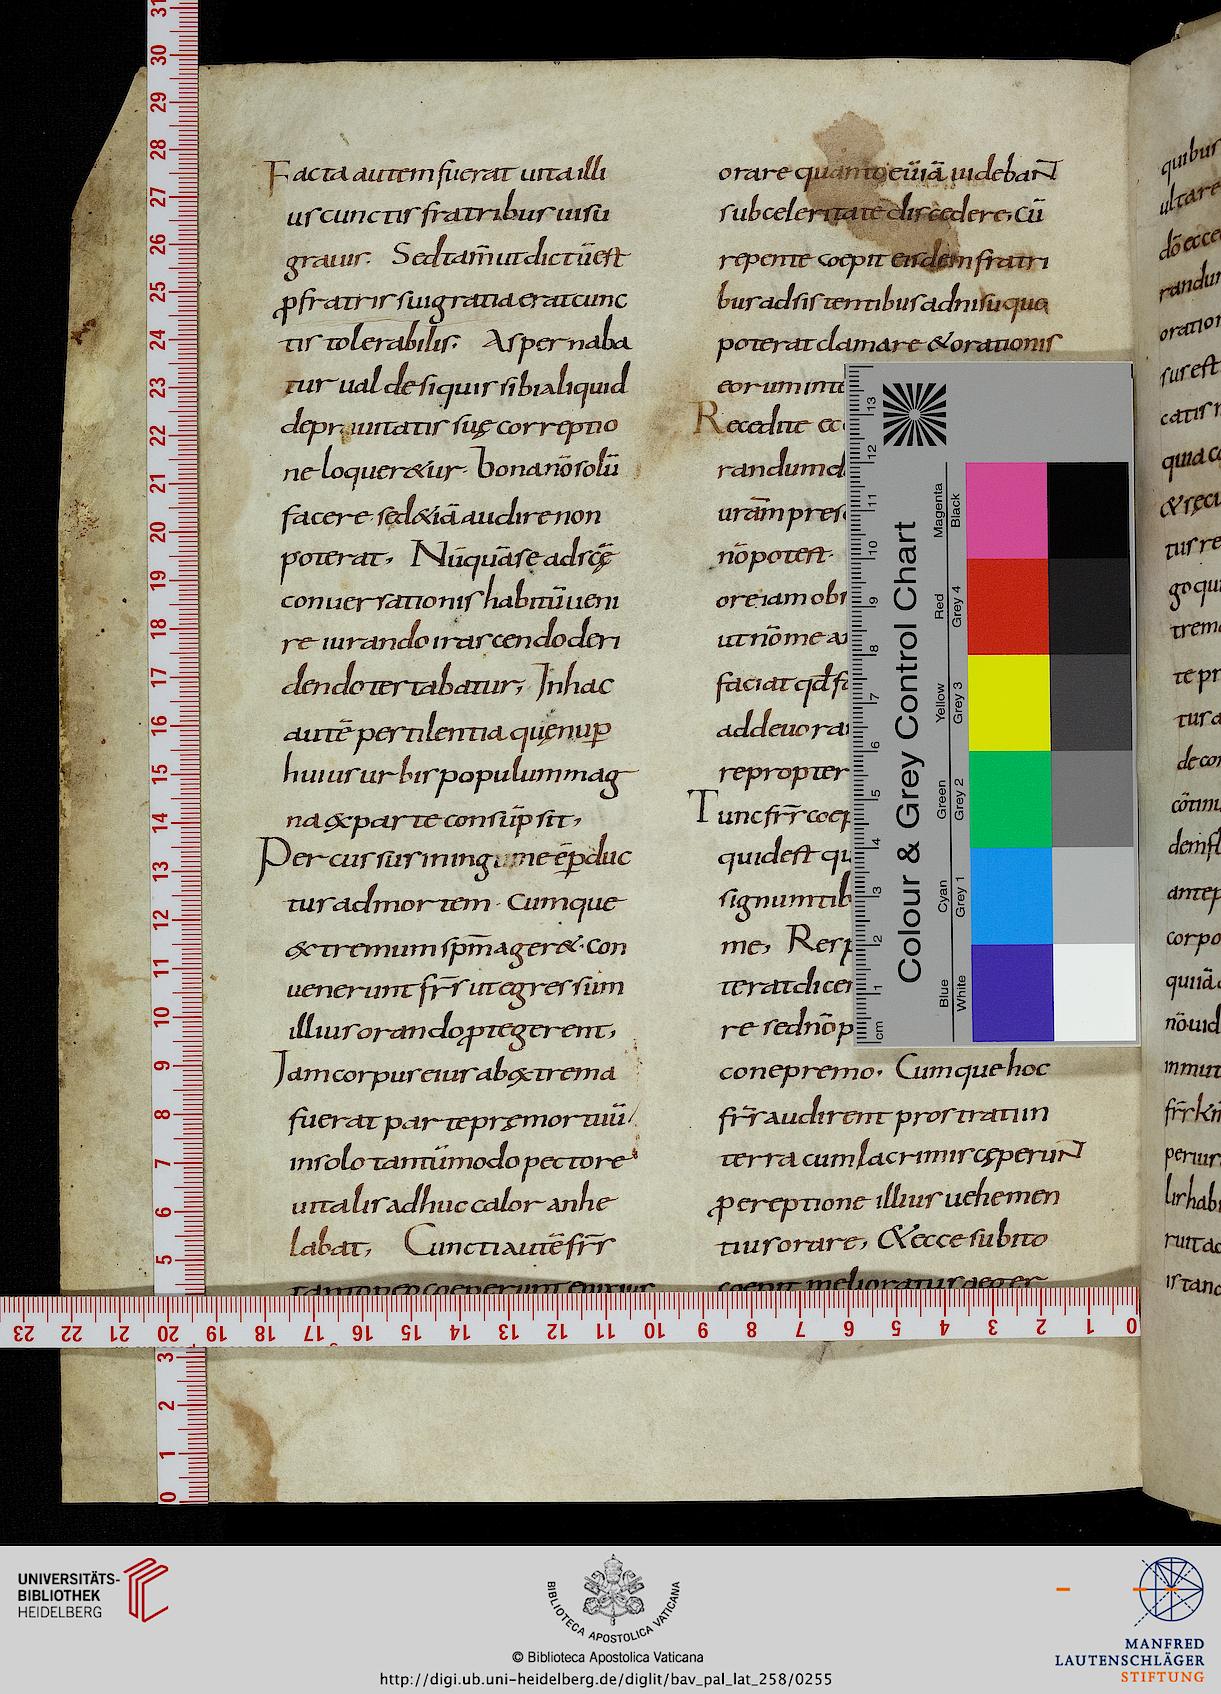 Facta autem fuerat uita illi
us cunctis fratribus uisu
grauis. Sed tam̄ ut dictū est
ꝓ fratris sui gratia erat cunc
tis tolerabilis. Aspernaba
tur ualde si quis sibi aliquid
de prauitatis suę correptio
ne loquer&ur. bona nō solū
facere sed &iā audire non
poterat, Nūquā se ad scę̄
conuersationis habitū ueni
re iurando irascendo deri
dendo testabatur, In hac
autē pestilentia quę nup̄
huius urbis populum mag
na ex parte consūpsit,
Percussus in inguine ē ꝑduc
tus ad mortem. Cumque
extremum sp̄m ager&. con
uenerunt fr̄s ut egressum
illius orando ꝓtegerent,
Iam corpus eius ab extrema
fuerat parte pręmortuū
in solo tantūmodo pectore
uitalis adhuc calor anhe
labat, Cuncti autē fr̄s
tanto pro eo ceperunt enixius
orare quanto eū iā uidebant
sub celeritate discedere, cū
repente coepit eisdem fratri
bus adsistentibus adnisu quo
poterat clamare & orationis
eorum inte
Recedite ec
randum d
uram̄ pres
nō potest.
ore iam obs
ut nō me a
faciat qd̄ fa
ad deuora
re propter
Tunc fr̄s coep
quid est qu
signum tib
me, Resp
terat dicer
re sed nō p
cone premo. Cumque hoc
fr̄s audirent prostrati in
terra cum lacrimis cęperunt
ꝓ ereptione illius uehemen
tius orare, & ecce subito
coepit melioratus aeger
quibus
ultare
dō ecce
randu
oration
sus est
catis
quia c
&
tus re
go qui
trem
te pr
tus a
de co
cōtinu
dem fl
ante p
corpo
quiā
nō uid
immut
fr̄s
periur
lis hab
ruit ac
is tanc
Colour & Grey Control Chart
Magenta
Black
Red
Grey 4
Yellow
Grey 3
Green
Grey 2
Cyan
Grey 1
Blue
White
cm 1 2 3 4 5 6 7 8 9 10 11 12 13
31 30 29 28 27 26 25 24 23 22 21 20 19 18 17 16 15 14 13 12 11 10 9 8 7 6 5 3 2 1 0
23 22 21 20 19 18 17 16 15 14 13 12 11 10 9 8 7 6 5 4 3 2 1 0
UNIVERSITÄTS-
BIBLIOTHEK
HEIDELBERG
BIBLIOTECA APOSTOLICA VATICANA
© Biblioteca Apostolica Vaticana
http://digi.ub.uni-heidelberg.de/diglit/bav_pal_lat_258/0255
MANFRED
LAUTENSCHLÄGER
STIFTUNG